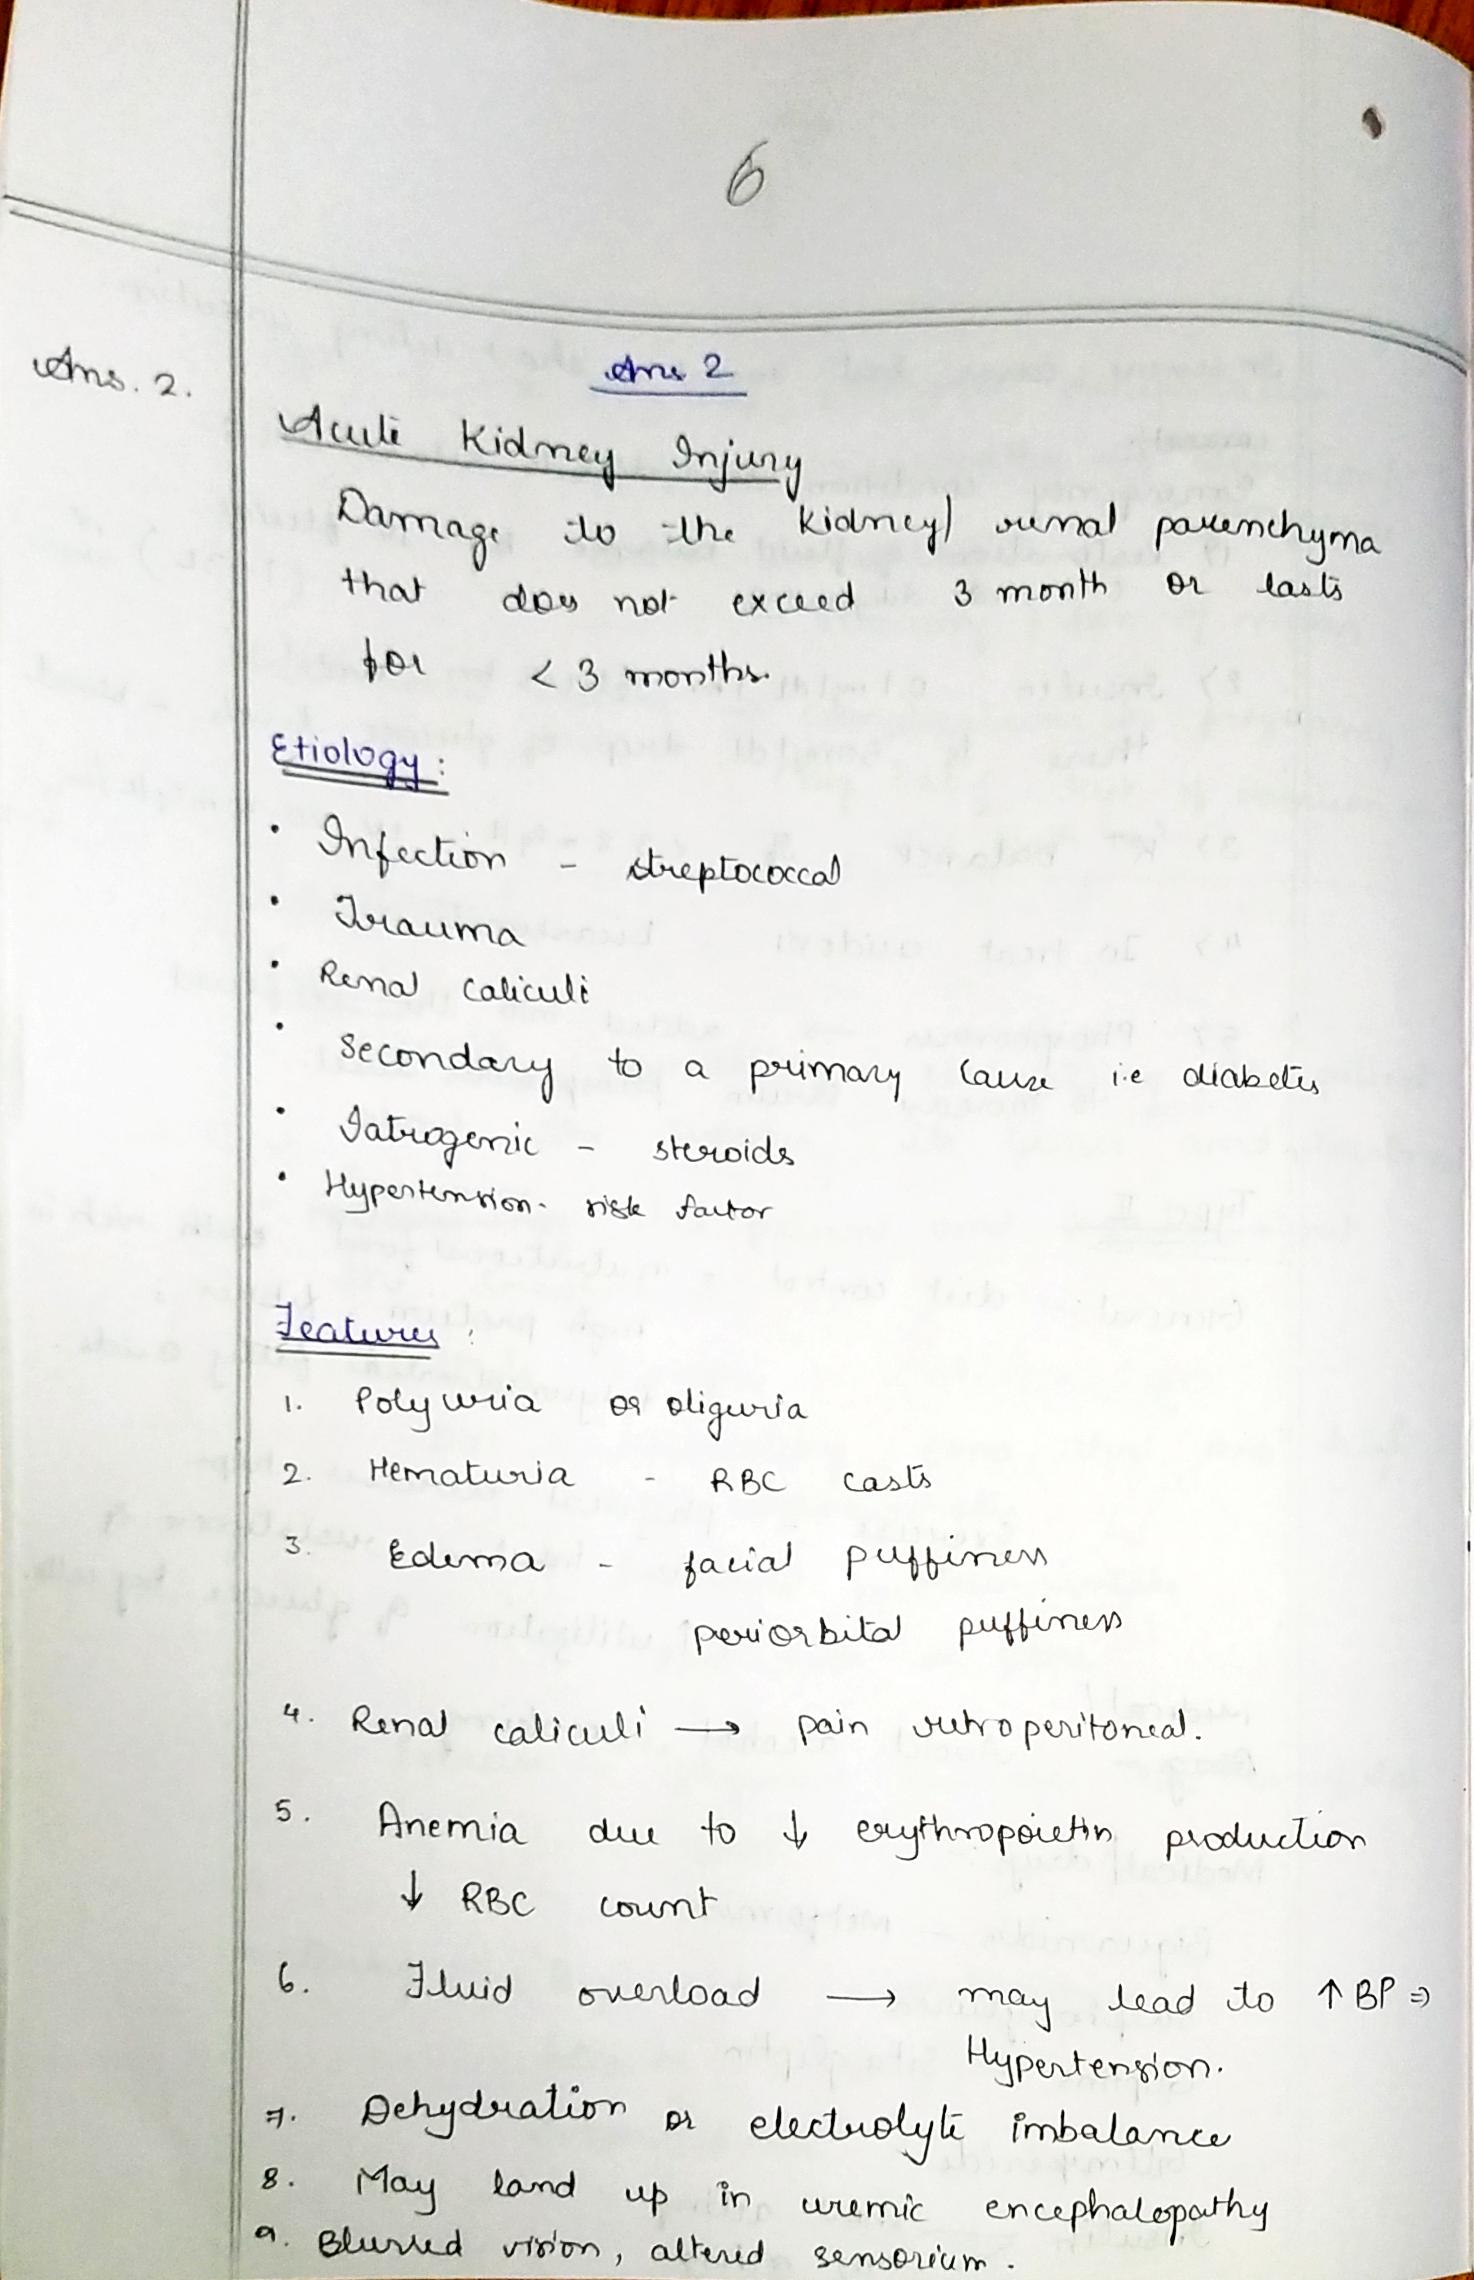 6
Ans. 2.
Ans 2
Acute Kidney Injury
Damage to the Kidney/ renal parenchyma
that does not exceed 3 month or lasts
for < 3 months.
Etiology :
• Infection - streptococcal
• Trauma
• Renal caliculi
• Secondary to a primary cause i.e diabetes
• Iatrogenic - steroids
• Hypertension - risk factor
Features :
1. Polyuria or oliguria
2. Hematuria - RBC casts
3. Edema - facial puffiness
periorbital puffiness
4. Renal caliculi → pain retroperitoneal.
5. Anemia due to ↓ erythropoietin production
↓ RBC count
6. Fluid overload → may lead to ↑ BP ⇒
Hypertension.
7. Dehydration or electrolyte imbalance
8. May land up in uremic encephalopathy
9. Blurred vision, altered sensorium.